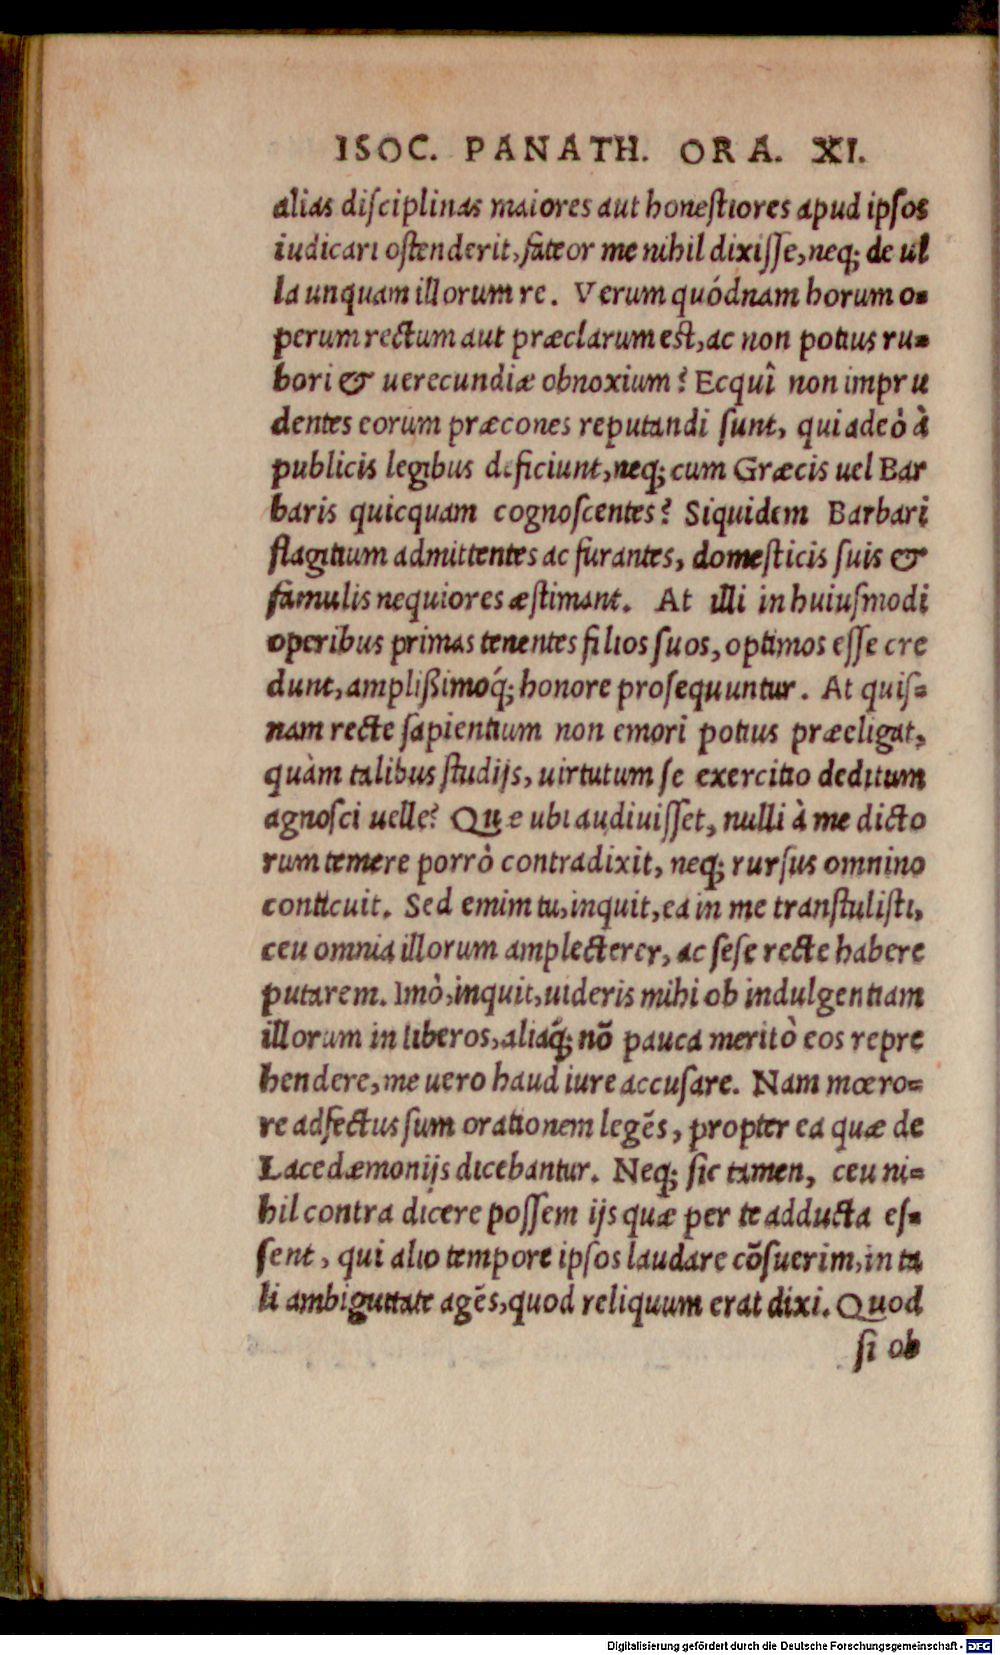 ISOC. PANATH. ORA. XI.
alias diſciplinas maiores aut honeſtiores apud ipſos
iudicari oſtenderit, fateor me nihil dixiſſe, neq; de ul
la unquam illorum re. Verum quódnam horum o-
perum rectum aut præclarum est, ac non potius ru-
bori & uerecundiæ obnoxium? Ecquî non impru
dentes eorum præcones reputandi ſunt, qui adeò à
publicis legibus deficiunt, neq; cum Græcis uel Bar
baris quicquam cognoſcentes? Siquidem Barbari
flagitium admittentes ac furantes, domeſticis ſuis &
famulis nequiores æſtimant. At illi in huiuſmodi
operibus primas tenentes filios ſuos, optimos eſſe cre
dunt, ampliſſimoq́; honore proſequuntur. At quiſ-
nam recte ſapientium non emori potius præeligat,
quàm talibus ſtudijs, uirtutum ſe exercitio deditum
agnoſci uelle? Quæ ubi audiuiſſet, nulli à me dicto
rum temere porrò contradixit, neq; rurſus omnino
conticuit. Sed emim tu, inquit, ea in me tranſtuliſti,
ceu omnia illorum amplecterer, ac ſeſe recte habere
putarem. Imò, inquit, uideris mihi ob indulgentiam
illorum in liberos, aliaq́; nõ pauca meritò eos repre
hendere, me uero haud iure accuſare. Nam mœro-
re adfectus ſum orationem legẽs, propter ea quæ de
Lacedæmonijs dicebantur. Neq; ſic tamen, ceu ni-
hil contra dicere poſſem ijs quæ per te adducta eſ-
ſent, qui alio tempore ipſos laudare cõſuerim, in ta
li ambiguitate agẽs, quod reliquum erat dixi. Quod
ſi ob
Digitalisierung gefördert durch die Deutsche Forschungsgemeinschaft - DFG